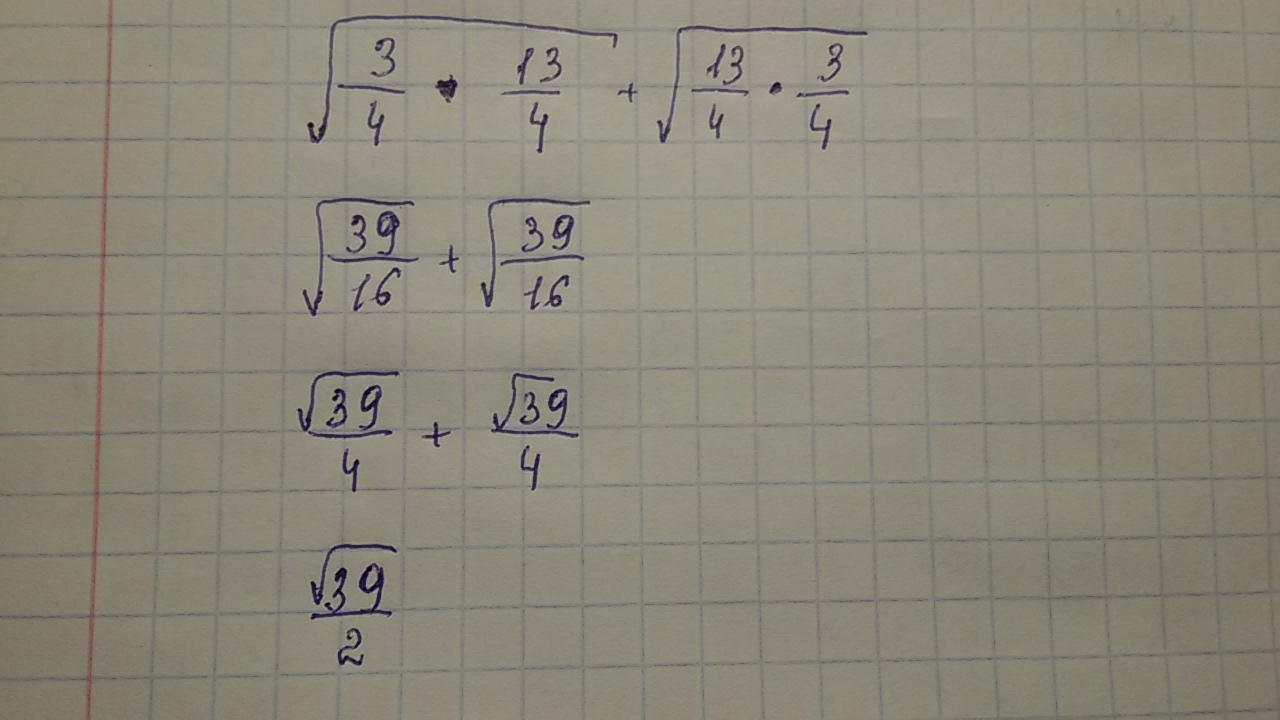 √(3/4 · 13/4) + √(13/4 · 3/4)
√(39/16) + √(39/16)
√39/4 + √39/4
√39/2